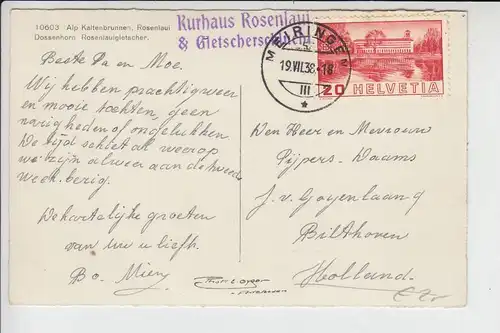 10603 Alp Kaltenbrunnen, Rosenlaui
Dossenhorn Rosenlauigletscher.
Kurhaus Rosenlaui
& Gletscherschlucht
MEIRINGEN
19.VII.38.-18
III
20 HELVETIA
Beste Pa en Moe.
Wy hebben prachtig weer
en mooie tochten geen
narigheden of ongelukken
De tyd schiet al weer op
we zyn al weer aan de tweede
week bezig.
De hartelyke groeten
van uw u liefh.
Bo. Mien
Den Heer en Mevrouw
Pypers-Daams
J. v. Goyenlaan 9
Bilthoven
Holland.